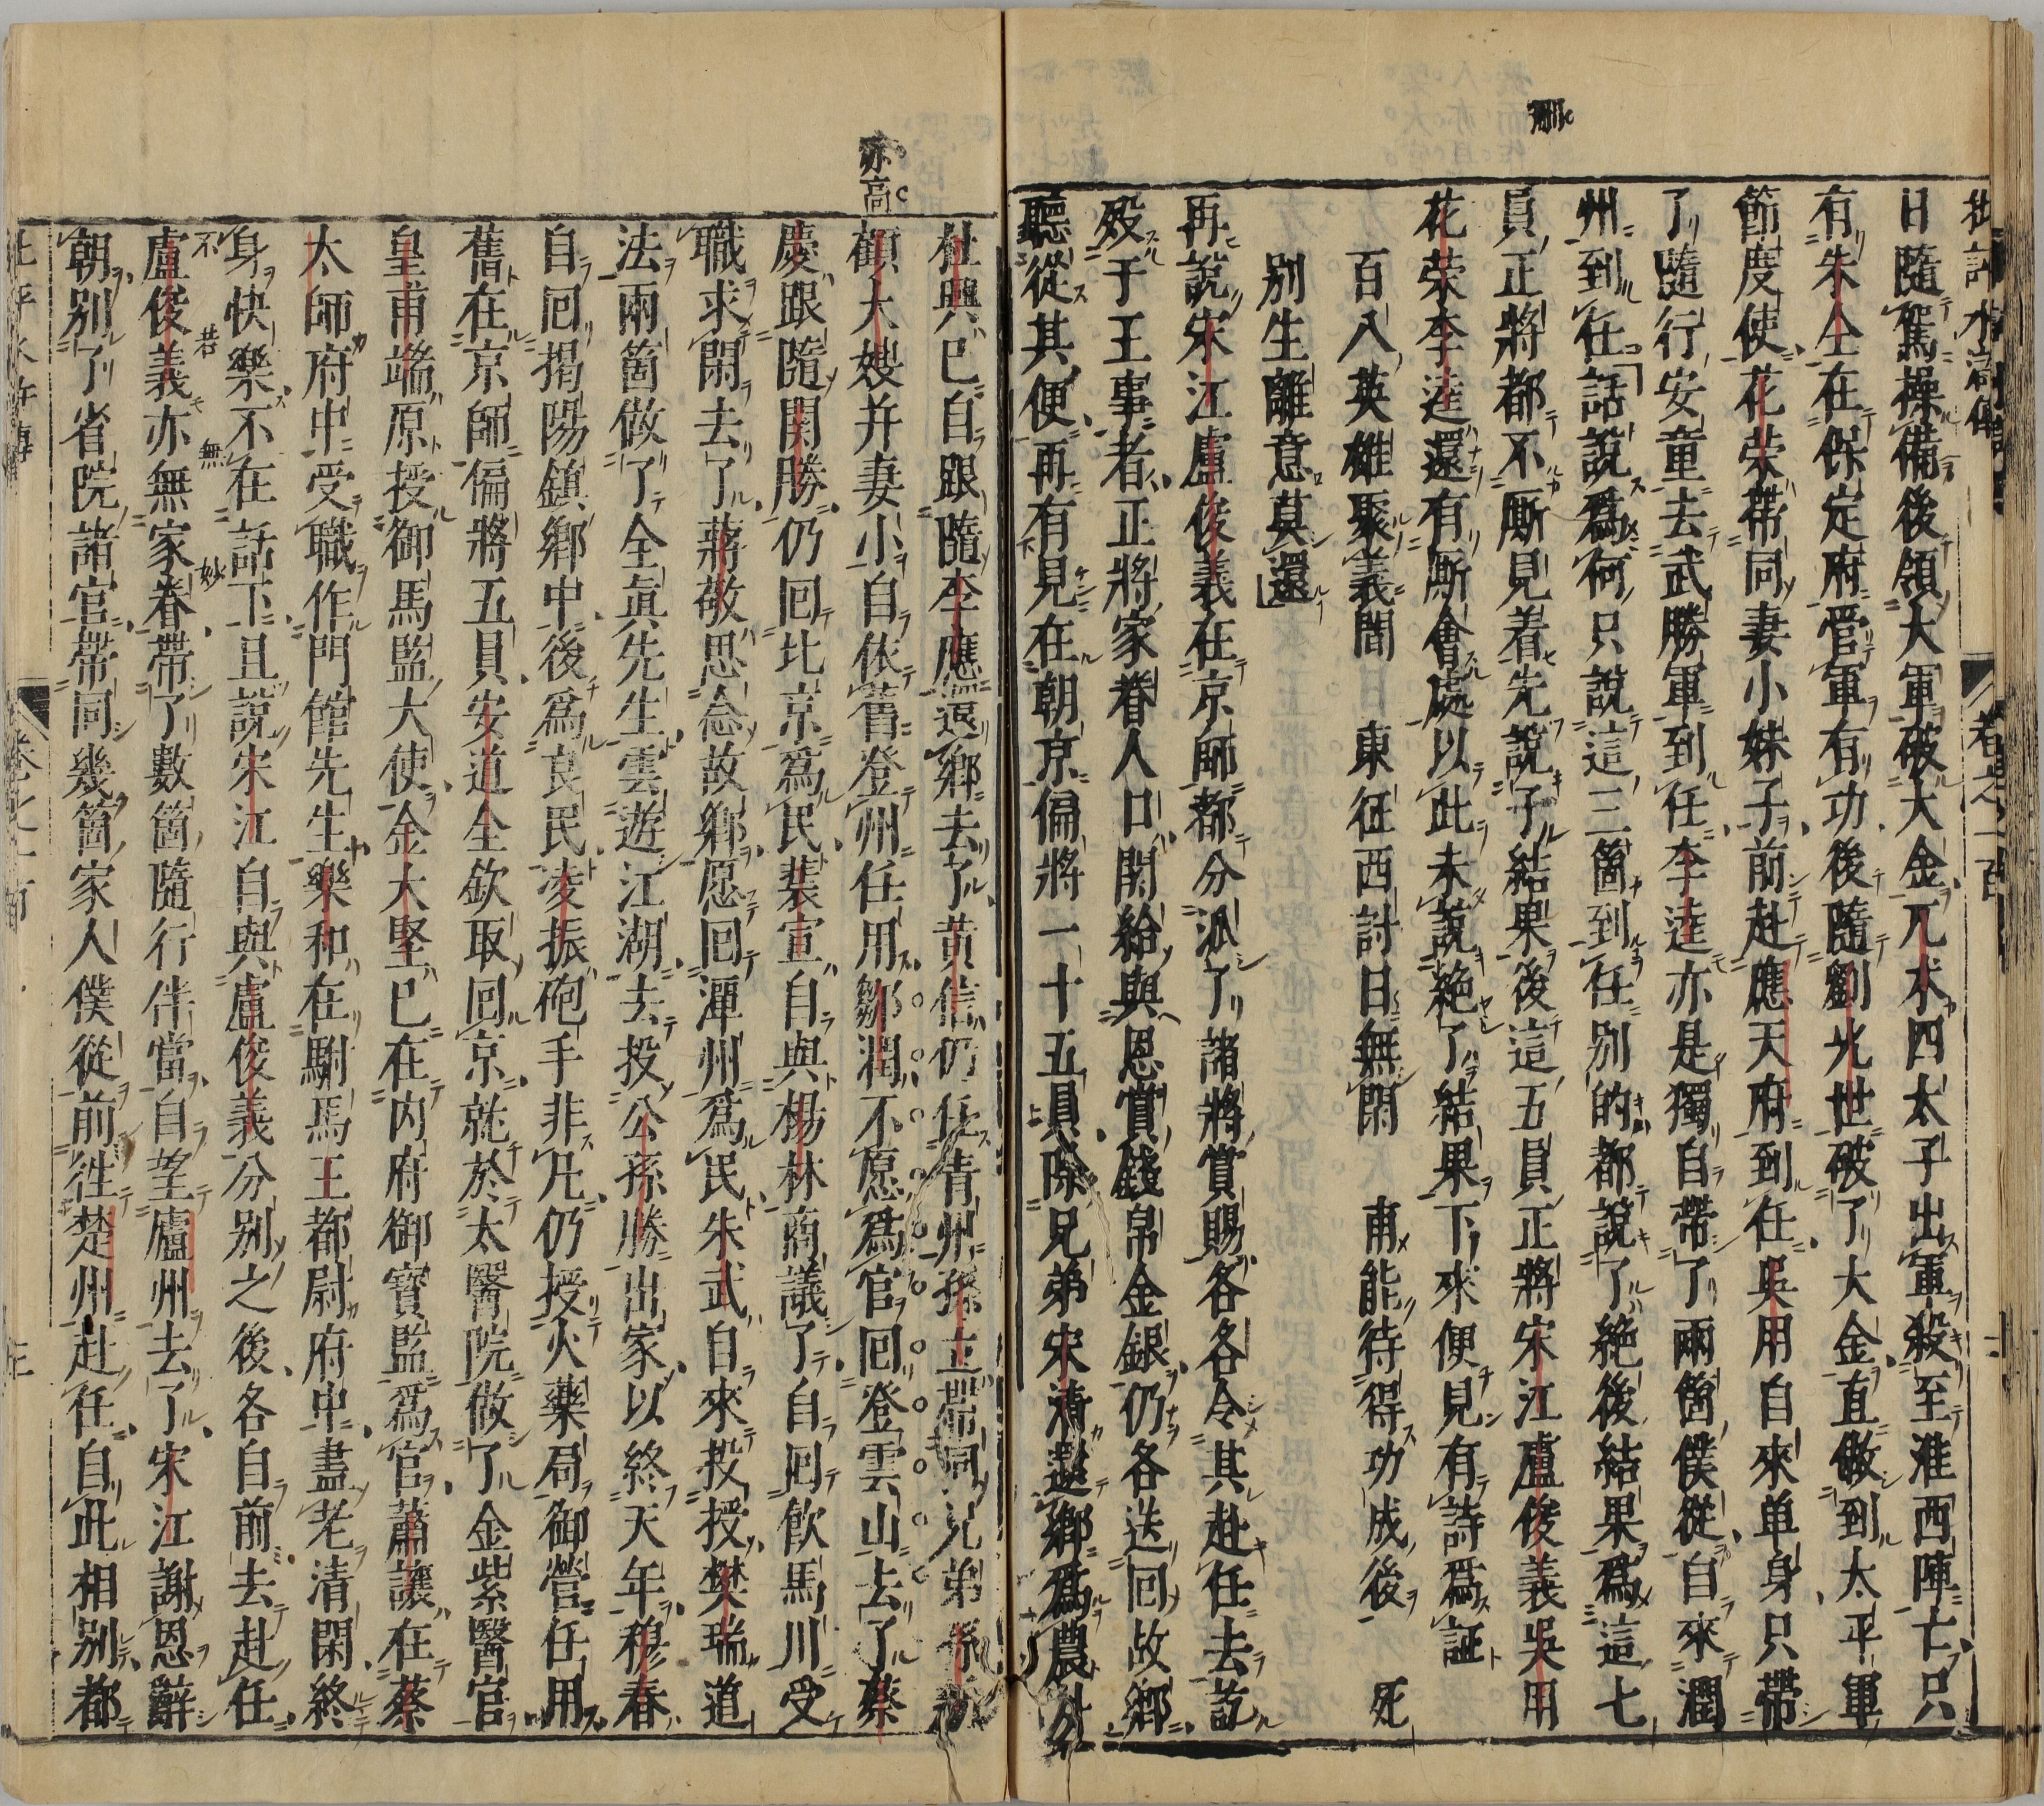 批評水滸傳
卷之一百
刪
日隨駕操備後領大軍破大金兀朮四太子出軍殺至淮西陣亡只
有朱仝在保定府管軍有功後隨劉光世破了大金直做到太平軍
節度使花荣帶同妻小妹子前赴應天府到任吳用自來单身只帶
了隨行安童去武勝軍到任李逵亦是獨自帶了兩箇僕從自來潤
州到任話說爲何只說這三箇到任別的都說了絶後結果爲這七
員正將都不厮見着先說了結果後這五員正將宋江盧俊義吳用
花荣李逵還有厮會處以此未說絶了結果下來便見有詩爲証
百八英雄聚義間　東征西討日無閑　甫能待得功成後　死
别生離意莫還
再說宋江盧俊義在京師都分派了諸將賞賜各各令其赴任去訖
殁于王事者正將家眷人口関給與恩賞錢帛金銀仍各送回故鄉
聽從其便再有見在朝京偏將一十五員除兄弟宋清還鄉爲農外
亦高
杜興已自跟隨李應還鄉去了黄信仍任青州孫立帶同兄弟孫新
顧大嫂并妻小自依舊登州任用鄒潤不愿爲官回登雲山去了蔡
慶跟隨関勝仍回北京爲民裴宣自與楊林商議了自回飲馬川受
職求閑去了蔣敬思念故鄉愿回潭州爲民朱武自來投授樊瑞道
法兩箇做了全眞先生雲遊江湖去投公孫勝出家以終天年穆春
自回揭陽鎮鄉中後爲良民凌振砲手非凡仍授火藥局御營任用
舊在京師偏將五員安道全欽取回京就於太醫院做了金紫醫官
皇甫端原授御馬監大使金大堅已在内府御寳監爲官蕭讓在蔡
太師府中受職作門館先生樂和在駙馬王都尉府中盡老清閑終
身快樂不在話下且說宋江自與盧俊義分别之後各自前去赴任
不若無妙
盧俊義亦無家眷帶了數箇隨行伴當自望廬州去了宋江謝恩辭
朝别了省院諸官帶同幾箇家人僕從前徃楚州赴任自此相别都